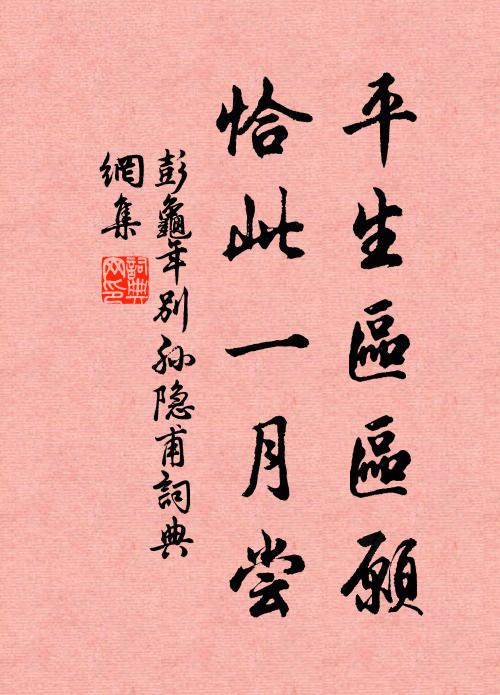 平生區區願
恰此一月尝
彭龜年别孙隐甫詞典
網集
詞典
网印